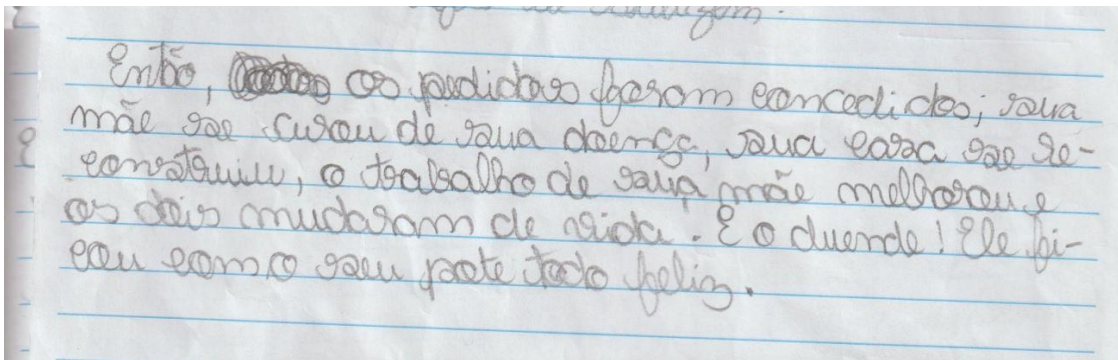 Então, os pedidos foram concedidos; sua
mãe se curou de sua doença, sua casa se re-
construiu, o trabalho de sua mãe melhorou e
os dois mudaram de vida. E o duende! Ele fi-
cou com o seu pote todo feliz.